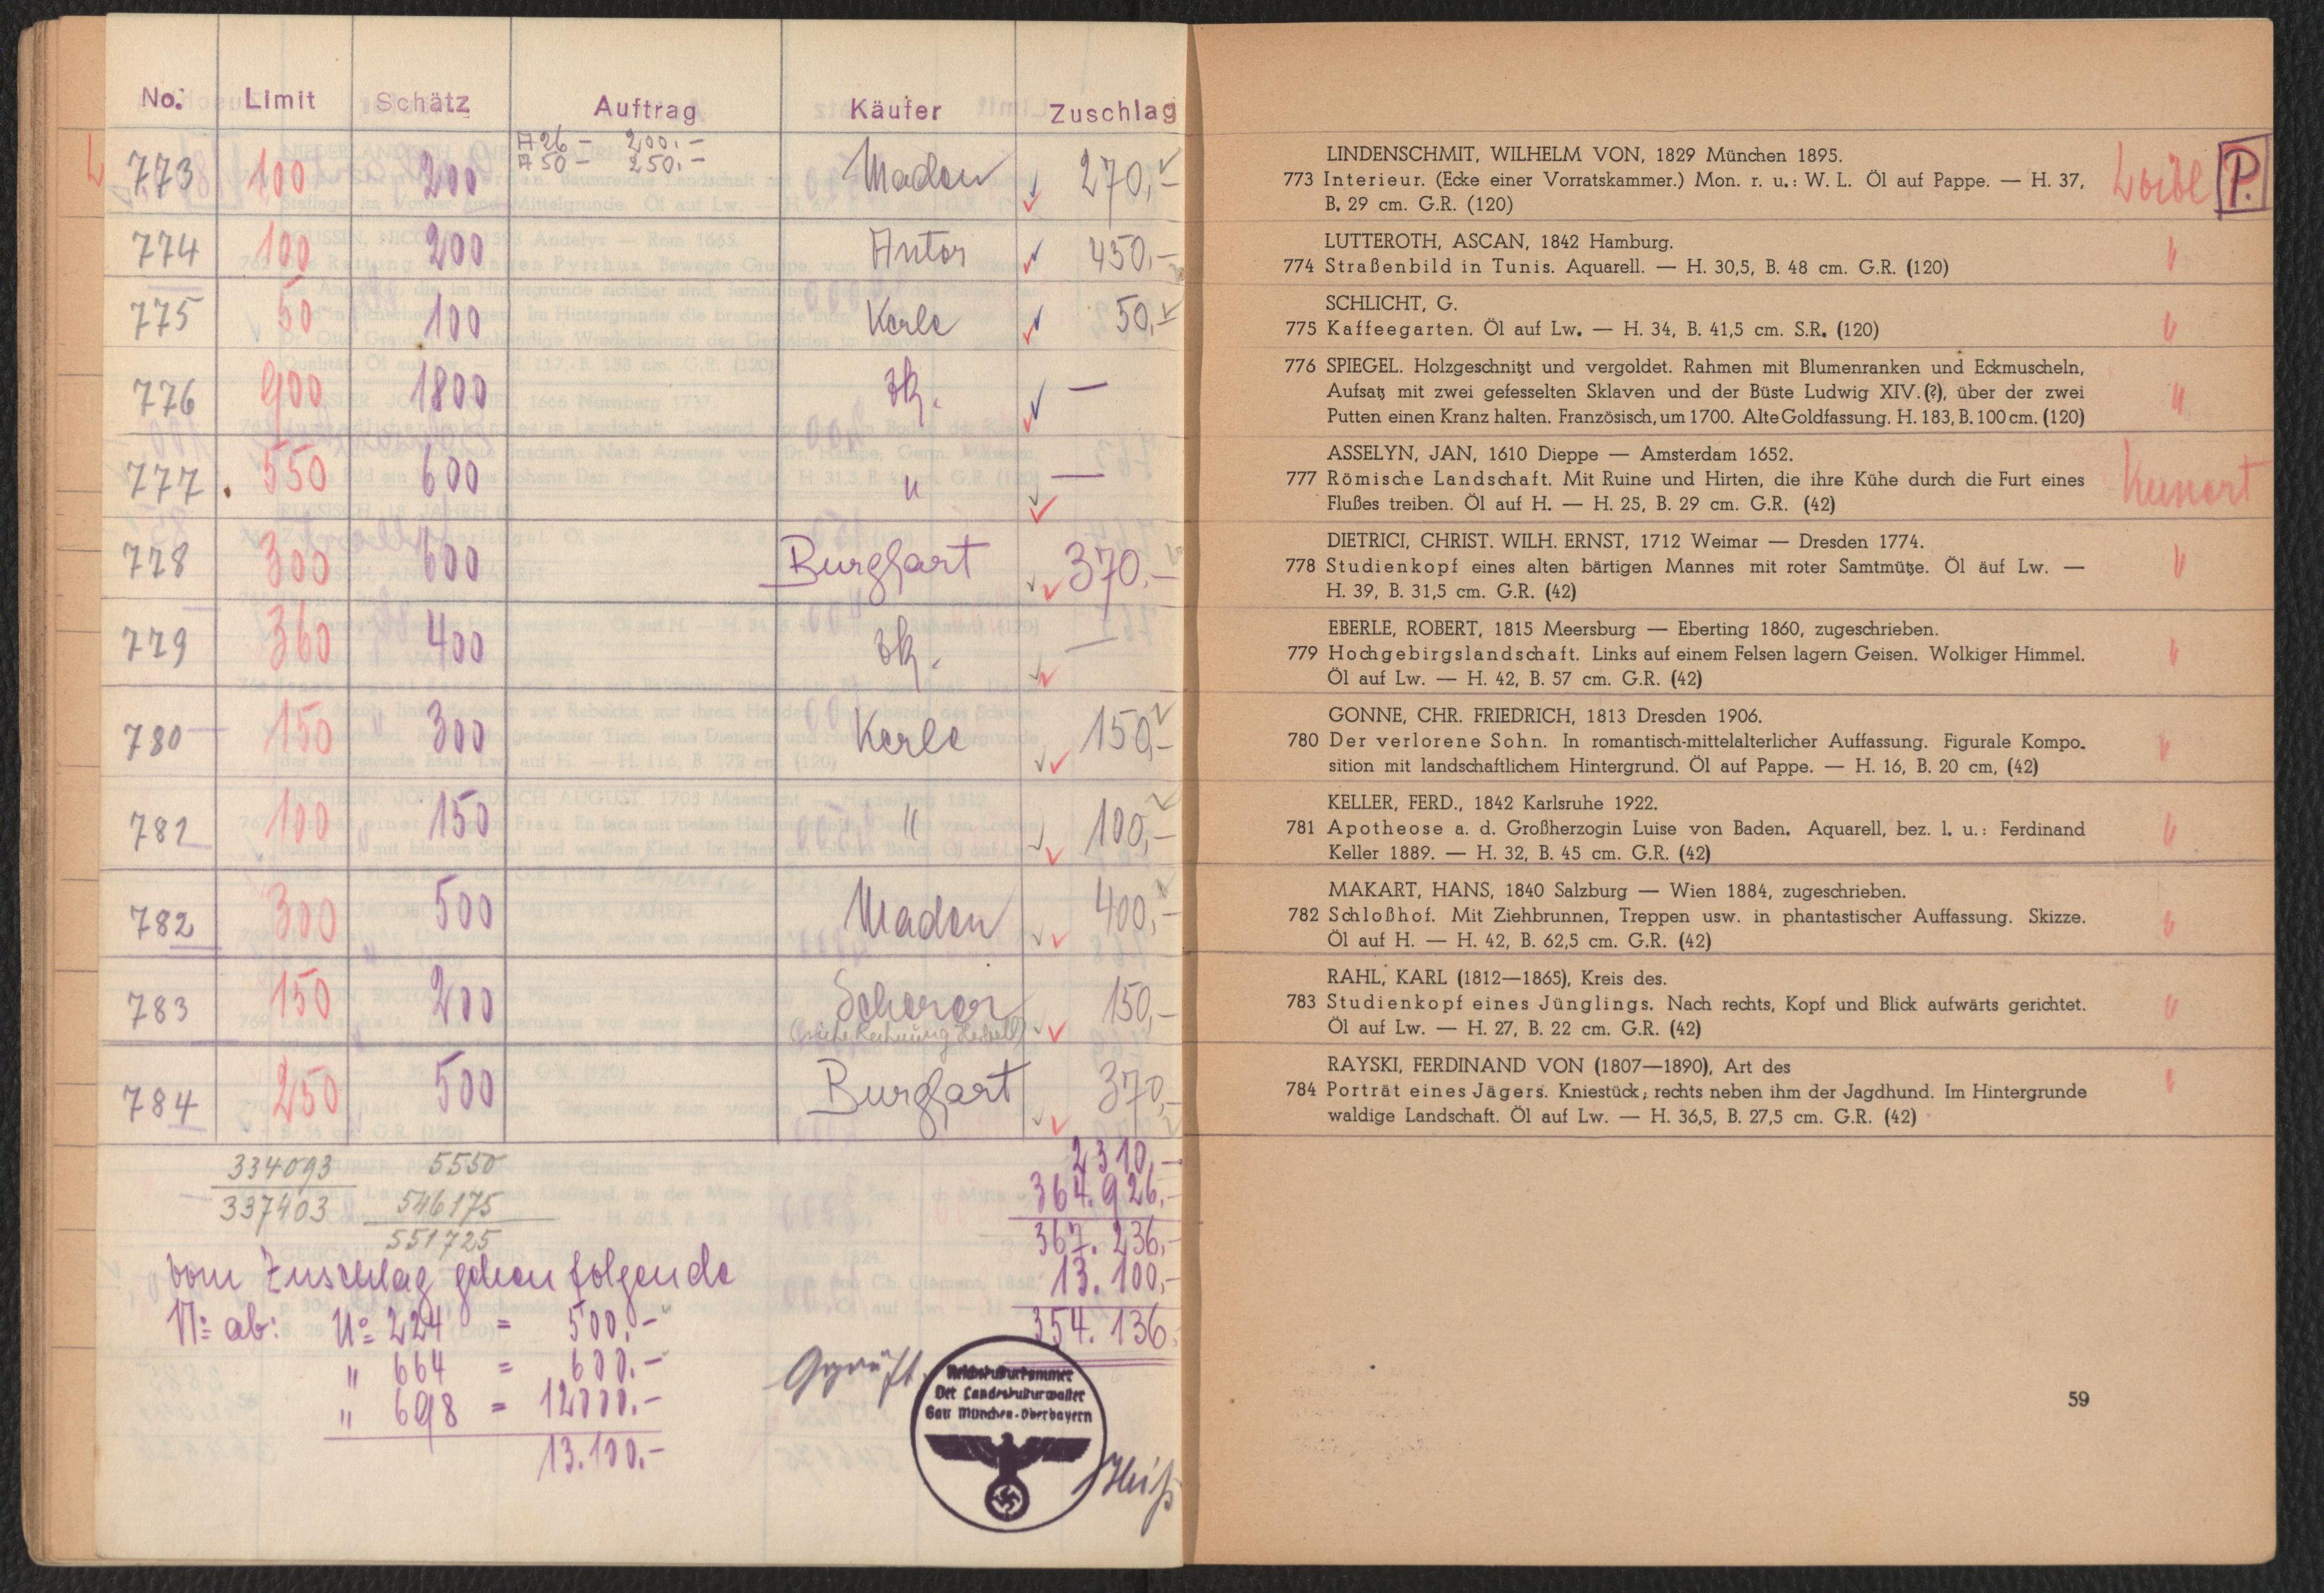 No. Limit Schätz Auftrag Käufer Zuschlag
A 26 - 200.-
773 100 200 A 50 - 250.- Maden 270,-
774 100 200 Antor 450,-
775 50 100 Kerle 50,-
776 900 1800 zk. —
777 . 550 600 " —
778 300 600 Burghart 370.-
779 360 400 zk. —
780 150 300 Kerle 150,-
781 100 150 " 100,-
782 300 500 Maden 400,-
783 150 200 Scherer 150,-
(siehe Rechnung
784 250 500 Burghart 370,-
334093 5550 2310,-
337403 546175 364.926,-
551725 367.236,-
vom Zuschlag gehen folgende 13.100,-
No ab: No 224 = 500.- 354.136.
" 664 = 600.-
" 698 = 12000.-
13.100.-
Geprüft.
Reichskulturkammer
Der Landeskulturwalter
Gau München-Oberbayern
LINDENSCHMIT, WILHELM VON, 1829 München 1895.
773 Interieur. (Ecke einer Vorratskammer.) Mon. r. u.: W. L. Öl auf Pappe. — H. 37, Loibl P.
B. 29 cm. G.R. (120)
LUTTEROTH, ASCAN, 1842 Hamburg.
774 Straßenbild in Tunis. Aquarell. — H. 30,5, B. 48 cm. G.R. (120) "
SCHLICHT, G.
775 Kaffeegarten. Öl auf Lw. — H. 34, B. 41,5 cm. S.R. (120) "
776 SPIEGEL. Holzgeschnitzt und vergoldet. Rahmen mit Blumenranken und Eckmuscheln,
Aufsatz mit zwei gefesselten Sklaven und der Büste Ludwig XIV. (?), über der zwei "
Putten einen Kranz halten. Französisch, um 1700. Alte Goldfassung. H. 183, B. 100 cm. (120)
ASSELYN, JAN, 1610 Dieppe — Amsterdam 1652.
777 Römische Landschaft. Mit Ruine und Hirten, die ihre Kühe durch die Furt eines Kunert
Flußes treiben. Öl auf H. — H. 25, B. 29 cm. G.R. (42)
DIETRICI, CHRIST. WILH. ERNST, 1712 Weimar — Dresden 1774.
778 Studienkopf eines alten bärtigen Mannes mit roter Samtmütze. Öl äuf Lw. — "
H. 39, B. 31,5 cm. G.R. (42)
EBERLE, ROBERT, 1815 Meersburg — Eberting 1860, zugeschrieben.
779 Hochgebirgslandschaft. Links auf einem Felsen lagern Geisen. Wolkiger Himmel. "
Öl auf Lw. — H. 42, B. 57 cm. G.R. (42)
GONNE, CHR. FRIEDRICH, 1813 Dresden 1906.
780 Der verlorene Sohn. In romantisch-mittelalterlicher Auffassung. Figurale Kompo- "
sition mit landschaftlichem Hintergrund. Öl auf Pappe. — H. 16, B. 20 cm, (42)
KELLER, FERD., 1842 Karlsruhe 1922.
781 Apotheose a. d. Großherzogin Luise von Baden. Aquarell, bez. l. u.: Ferdinand "
Keller 1889. — H. 32, B. 45 cm. G.R. (42)
MAKART, HANS, 1840 Salzburg — Wien 1884, zugeschrieben.
782 Schloßhof. Mit Ziehbrunnen, Treppen usw. in phantastischer Auffassung. Skizze. "
Öl auf H. — H. 42, B. 62,5 cm. G.R. (42)
RAHL, KARL (1812—1865), Kreis des.
783 Studienkopf eines Jünglings. Nach rechts, Kopf und Blick aufwärts gerichtet. "
Öl auf Lw. — H. 27, B. 22 cm. G.R. (42)
RAYSKI, FERDINAND VON (1807—1890), Art des
784 Porträt eines Jägers. Kniestück; rechts neben ihm der Jagdhund. Im Hintergrunde "
waldige Landschaft. Öl auf Lw. — H. 36,5, B. 27,5 cm. G.R. (42)
59